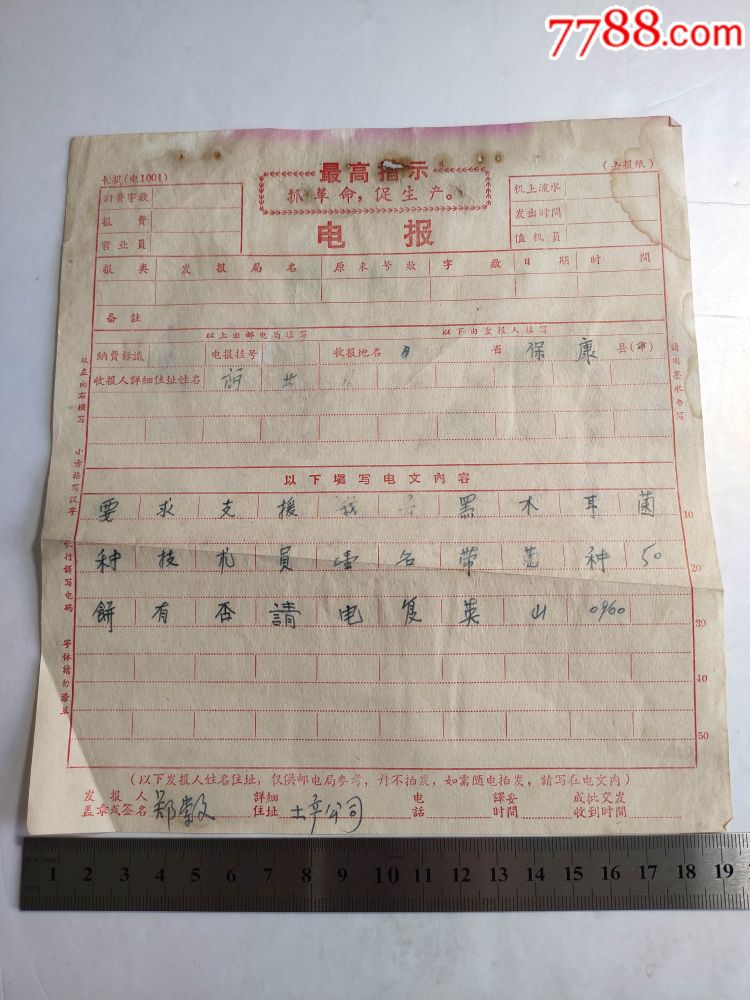 7788.com
最高指示
抓革命，促生产。
长邮(电1001)
(去报纸)
計費字数
报費
营业員
机上流水
发出时間
值机員
电报
报类 发报局名 原来号数 字数 日期 时間
备註
以上由邮电局填写 以下由发报人填写
納費标識 电报挂号 收报地名 省 保康 县(市)
收报人詳細住址姓名
从左向右横写 小方格写汉字 长行譜写电碼 字体請勿潦草
請用墨水书写
以下填写电文內容
要求支援我 黑木耳菌 10
种技术員壹名带菌种50 20
餅有否請电复英山0960 30
40
50
(以下发报人姓名住址，仅供邮电局参考，幷不拍发，如需随电拍发，請写在电文内)
发报人盖章或签名 郑 詳細住址 土产公司 电話 譯妥时間 成批交发收到时間
1 2 3 4 5 6 7 8 9 10 11 12 13 14 15 16 17 18 19